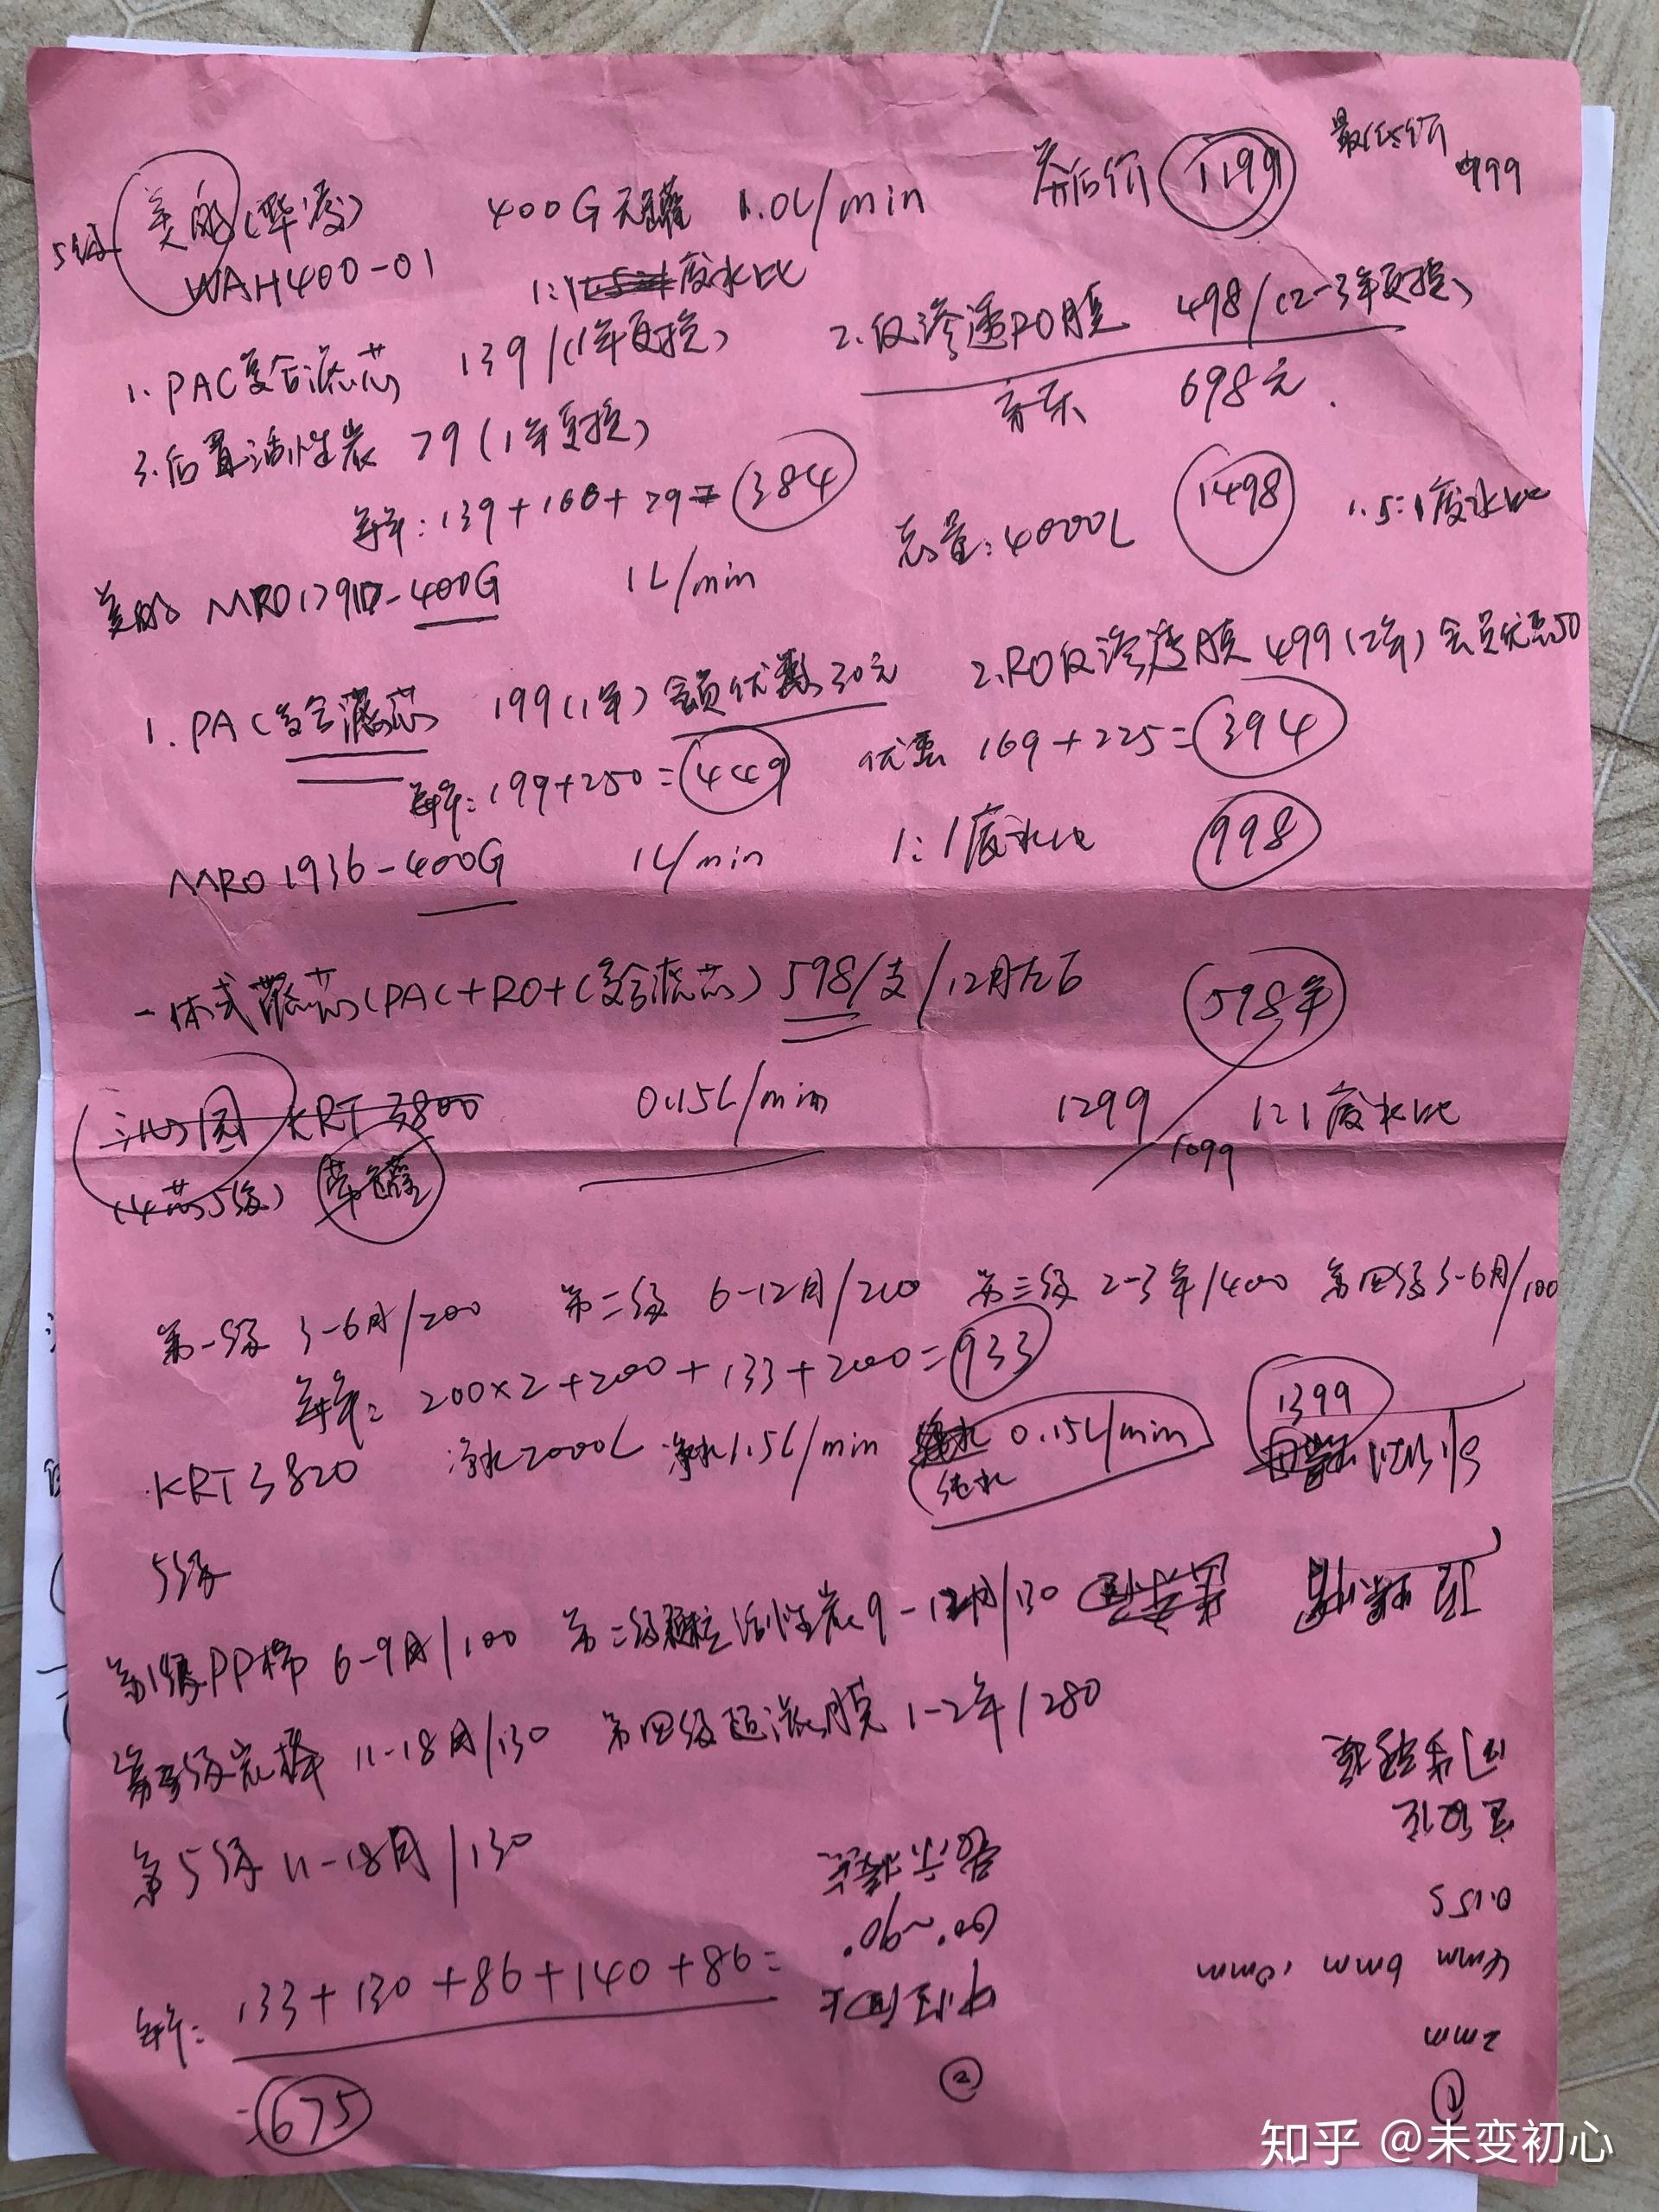 5级 美的(华凌) 400G无罐 1.0L/min 券后价 1199 最低价 999
WAH400-01 1:1 废水比
1. PAC复合滤芯 139/(1年更换) 2.反渗透RO膜 498/(2-3年更换)
京东 698元.
3.后置活性炭 79(1年更换)
每年:139+166+79=384
总量:4000L 1498 1.5:1废水比
美的 MRO1791D-400G 1L/min
1. PAC复合滤芯 199(1年)会员优惠30元 2.RO反渗透膜 499(2年)会员优惠50
每年:199+250=449 优惠 169+225=394
MRO 1936-400G 1L/min 1:1废水比 998
一体式滤芯(PAC+RO+C复合滤芯)598/支/12月左右 598年
沁园 KRT3800 0.15L/min 1299 1099 1:1废水比
(4芯5级) 带罐
第一级 3-6月/200 第二级 6-12月/200 第三级 2-3年/400 第四级3-6月/100
每年:200×2+200+133+200=933
KRT3820 净水2000L 净水1.5L/min 纯水 0.15L/min 1399
5级
第1级PP棉 6-9月/100 第二级颗粒活性炭9-12月/130
第三级炭棒 11-18月/130 第四级超滤膜 1-2年/280
第5级 11-18月/130
每年:133+130+86+140+86=
=675
①
2mm
4mm 6mm 10mm
0.155
②
60°~90°
知乎 @未变初心